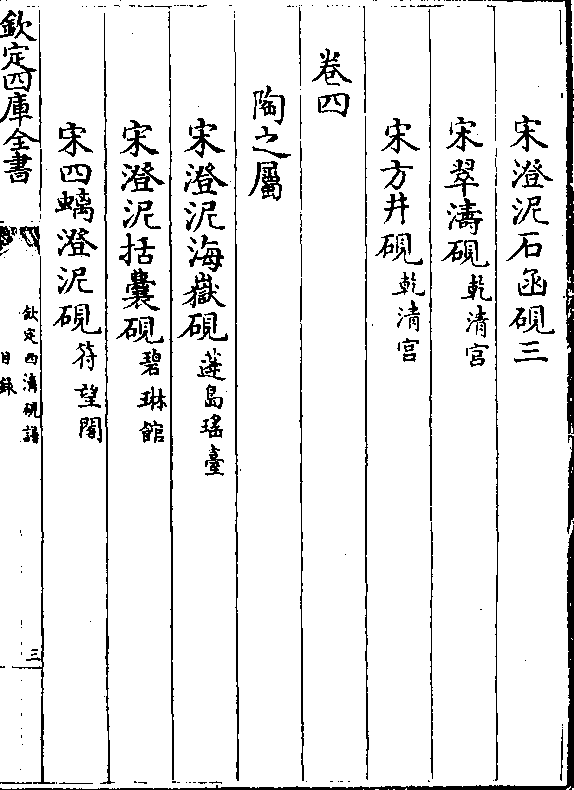 宋澄泥石函硯三
宋翠濤硯乾清宮
宋方井硯乾清宮
卷四
陶之屬
宋澄泥海嶽硯蓬島瑤臺
宋澄泥括囊硯碧琳館
宋四螭澄泥硯符望閣
欽定四庫全書
欽定西清硯譜
目錄
三